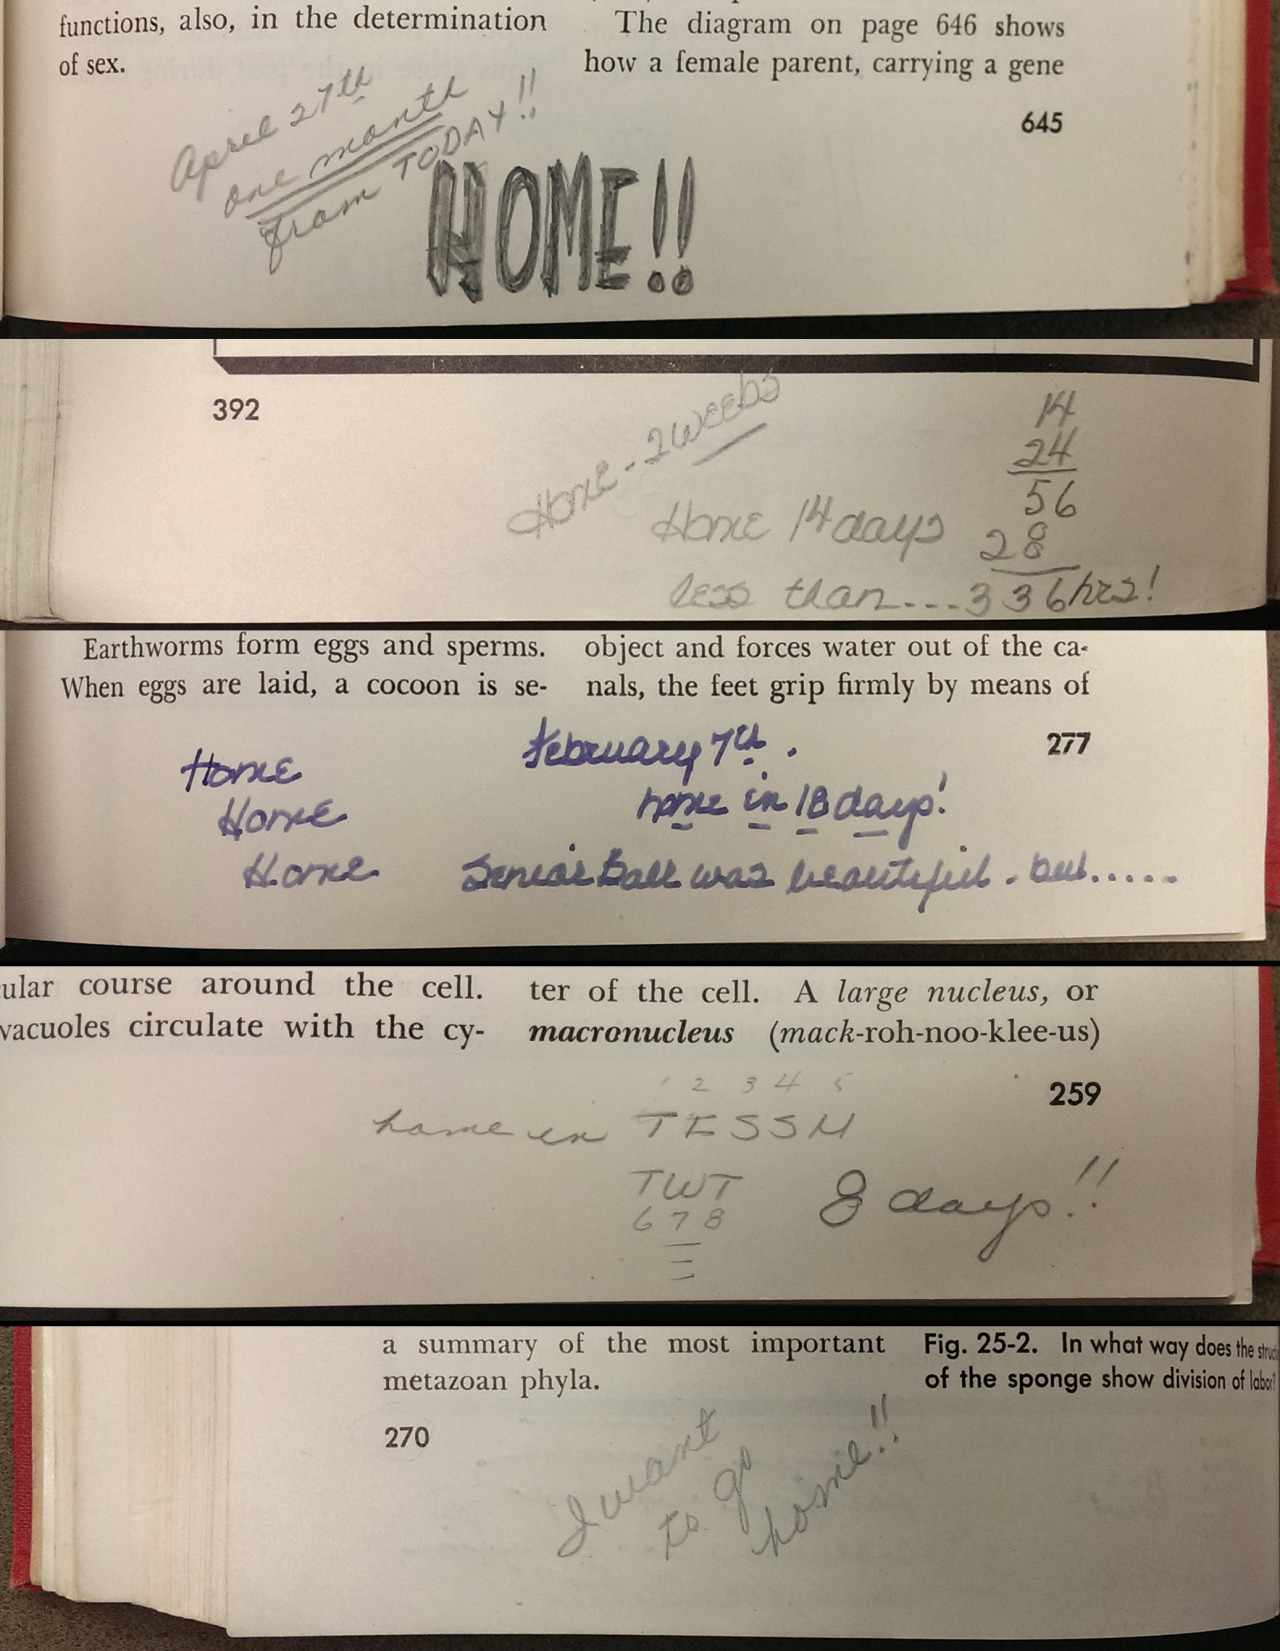 functions, also, in the determination
of sex.
The diagram on page 646 shows
how a female parent, carrying a gene
645
April 27th
one month
from TODAY!!
HOME!!
392
Home - 2 weeks
Home 14 days
less than... 336 hrs!
14
24
56
28
Earthworms form eggs and sperms.
When eggs are laid, a cocoon is se-
object and forces water out of the ca-
nals, the feet grip firmly by means of
277
Home
Home
Home
February 7th.
home in 18 days!
Senior Ball was beautiful. but.....
ular course around the cell.
vacuoles circulate with the cy-
ter of the cell. A large nucleus, or
macronucleus (mack-roh-noo-klee-us)
259
1 2 3 4 5
home in TFSSM
TWT
6 7 8
8 days!!
a summary of the most important
metazoan phyla.
270
Fig. 25-2. In what way does the struc
of the sponge show division of labor?
I want
to go
home!!